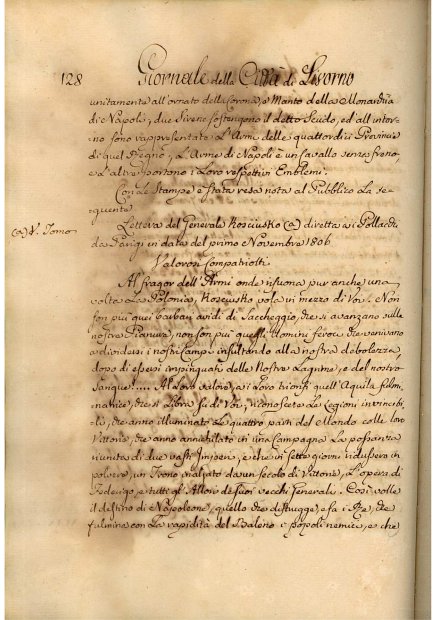 128 Giornale della Città di Livorno
unitamente all'ornato della Corona, e Manto della Monarchia
di Napoli, due Sirene sostengono il detto Scudo, ed all'intor-
no sono rappresentate L'Armi delle quattordici Provincie
di quel Regno, L'Arme di Napoli è un Cavallo senza freno,
e L'altre portono i Loro respettivi Emblemi.
Con Le Stampe è stata resa nota al Pubblico La se-
guente
(a) V. Tomo
Lettera del Generale Kosciusko (a) diretta ai Pollacchi
da Parigi in data del primo Novembre 1806
Valorosi Compatriotti
Al fragor dell'Armi onde risuona pur anche una
volta La Polonia, Kosciusko vola in mezzo di Voi. Non
son più quei barbari avidi di Saccheggio, che si avanzano sulle
nostre Pianure, non son più quegli Uomini feroci che venivano
a dividersi i nostri Campi insultando alla nostra debolezza,
dopo di essersi impinguati delle Nostre Lagrime, e del nostro
Sangue!.... Al Loro valore, ai Loro trionfi quell'Aquila fulmi-
natrice, che si Libra su di Voi, riconoscete Le Legioni invincibi-
li, che anno illuminato Le quattro parti del Mondo colle loro
Vittorie, che anno annichilato in una Campagna La possanza
riunita di due vasti Imperi, e che in sette giorni ridussero in
polvere, un Trono inalzato da un secolo di Vittorie, L'opera di
Federigo, e tutti gl'Allori de suoi vecchi Generali. Così volle
il destino di Napoleone, quello che distrugge, e fa i Re, che
fulmina con La rapidità del Baleno i popoli nemici, e che